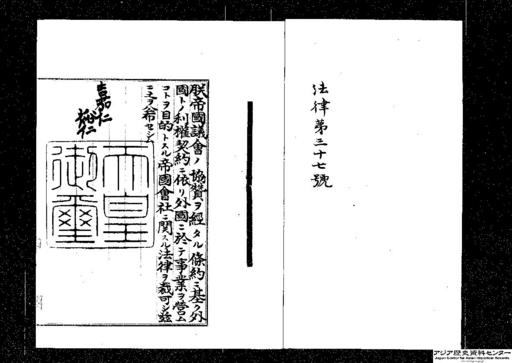 法律第三十七號
朕帝國議會ノ協贊ヲ經タル條約ニ基ク外
國トノ利權契約ニ依リ外國ニ於テ事業ヲ營ム
コトヲ目的トスル帝國會社ニ関スル法律ヲ裁可シ茲
ニ之ヲ公布セシム
嘉仁
裕仁
天皇
御璽
アジア歴史資料センター
Japan Center for Asian Historical Records